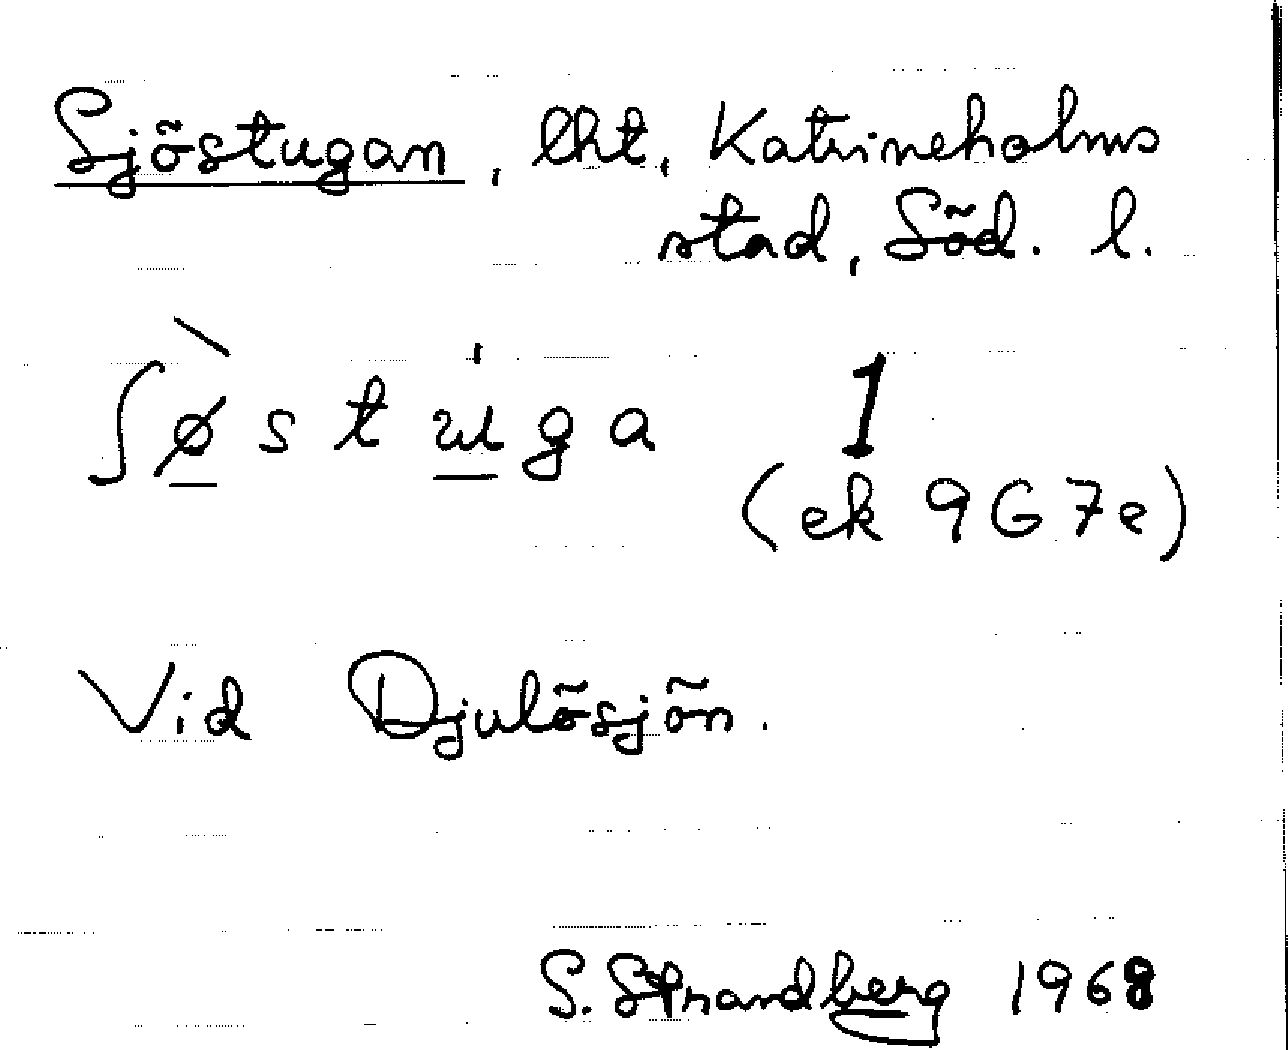 Sjöstugan, lht, Katrineholms
stad, Söd. l.
ʃø̀stu̍ga 1
(ek 9G7e)
Vid Djulösjön.
S. Strandberg 1968